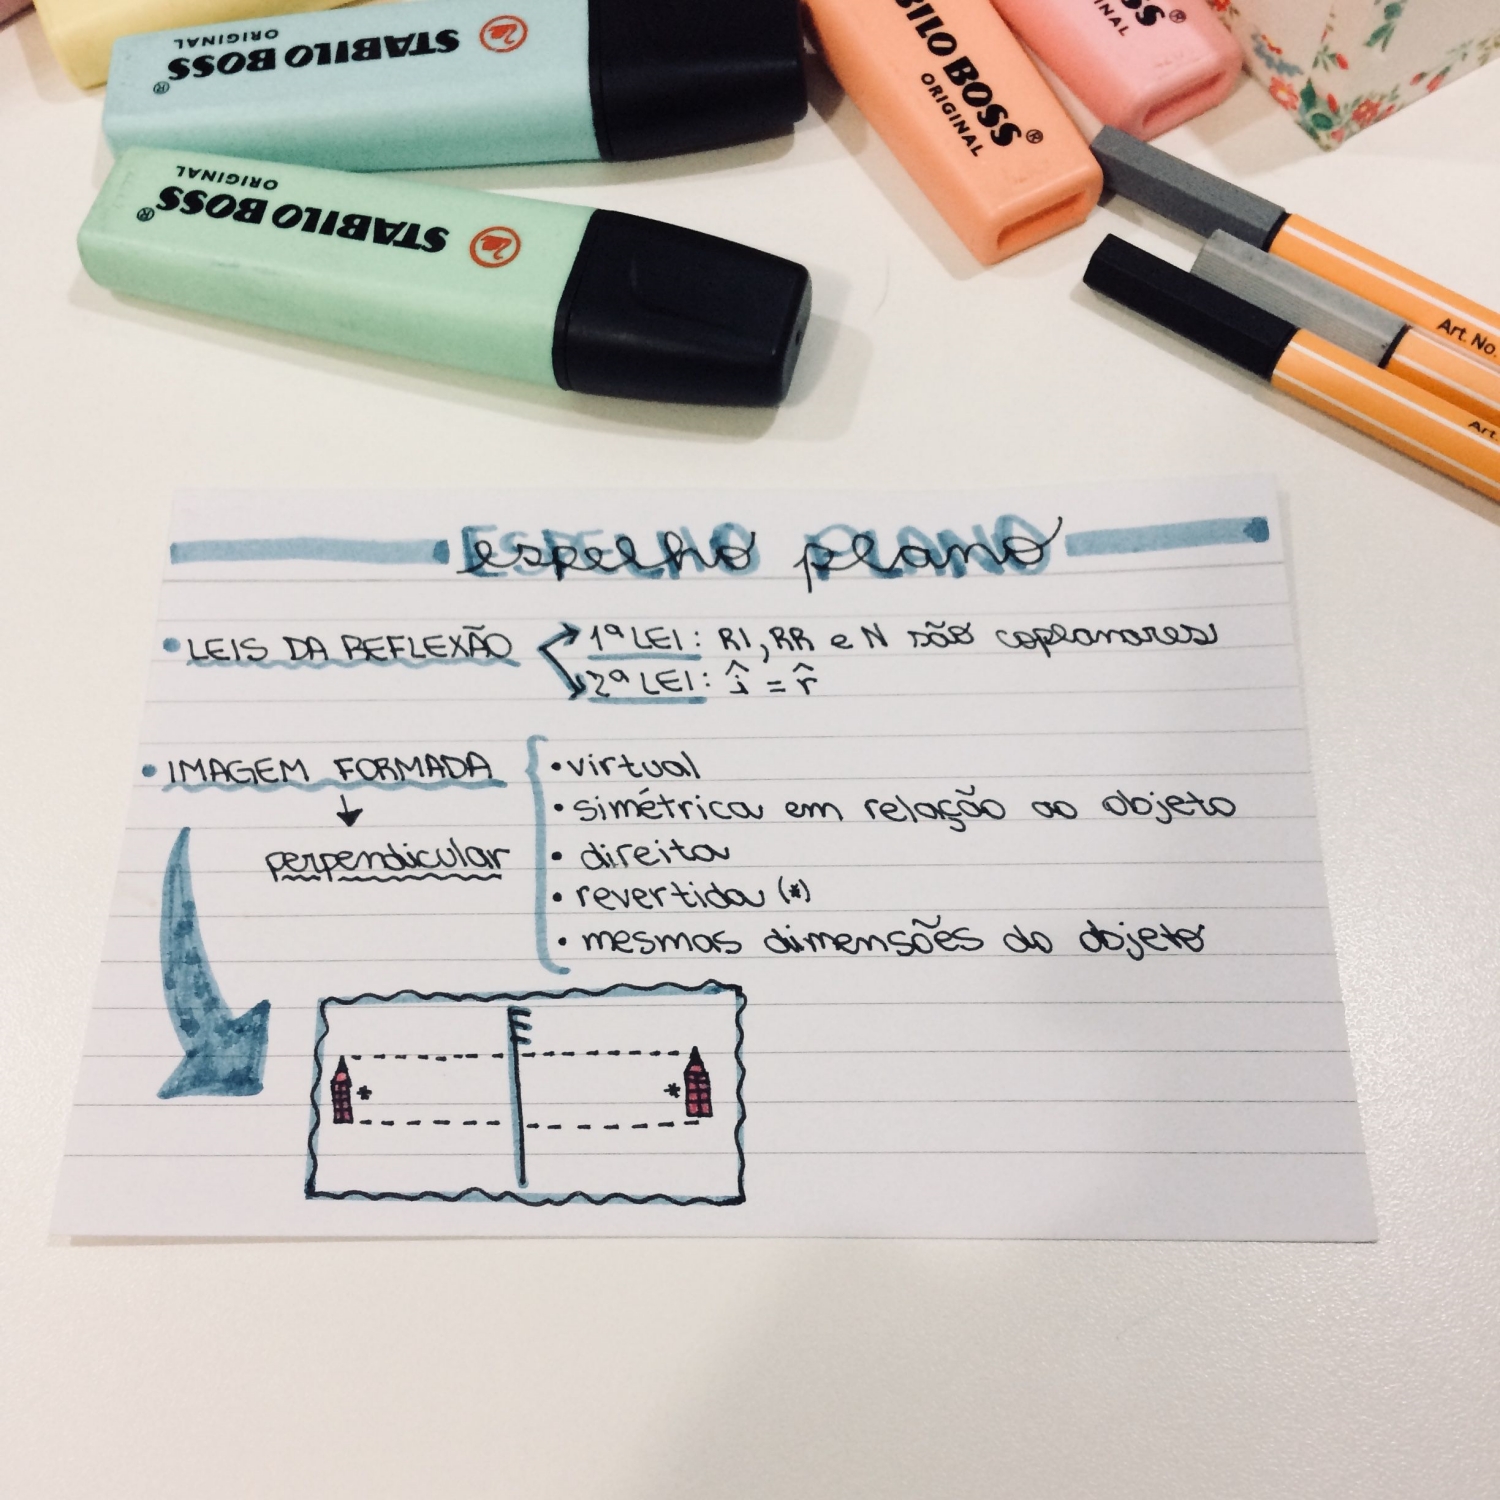 STABILO BOSS®
ORIGINAL
STABILO BOSS®
ORIGINAL
BILO BOSS®
ORIGINAL
SS®
INAL
Art. No.
Art.
ESPELHO PLANO
espelho plano
• LEIS DA REFLEXÃO
1ª LEI: RI, RR e N são coplanares
2ª LEI: î = r̂
• IMAGEM FORMADA
perpendicular
• virtual
• simétrica em relação ao objeto
• direita
• revertida (*)
• mesmas dimensões do objeto
* *